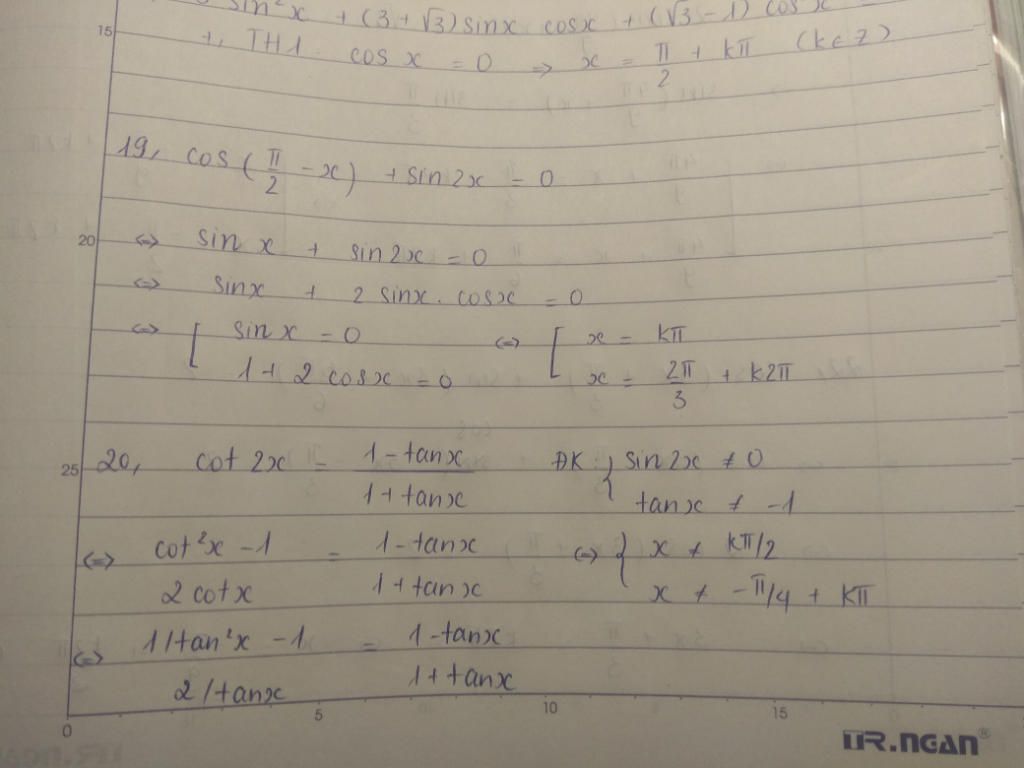 sin²x + (3+√3) sinx cosx + (√3-1) cos²x
15
+, TH1 cos x = 0 => x = π/2 + kπ (k∈Z)
19, cos(π/2 - x) + sin2x = 0
20
<=> sin x + sin2x = 0
<=> sinx + 2 sinx.cosx = 0
<=> [ sin x = 0 <=> [ x = kπ
1+ 2 cosx = 0 x = 2π/3 + k2π
25
20, cot 2x = (1-tanx)/(1+tanx) ĐK : { sin2x ≠ 0
tanx ≠ -1
<=> (cot²x -1)/(2cotx) = (1-tanx)/(1+tanx) <=> { x ≠ kπ/2
x ≠ -π/4 + kπ
<=> (1/tan²x -1)/(2/tanx) = (1-tanx)/(1+tanx)
0 5 10 15
UR.NGAN®